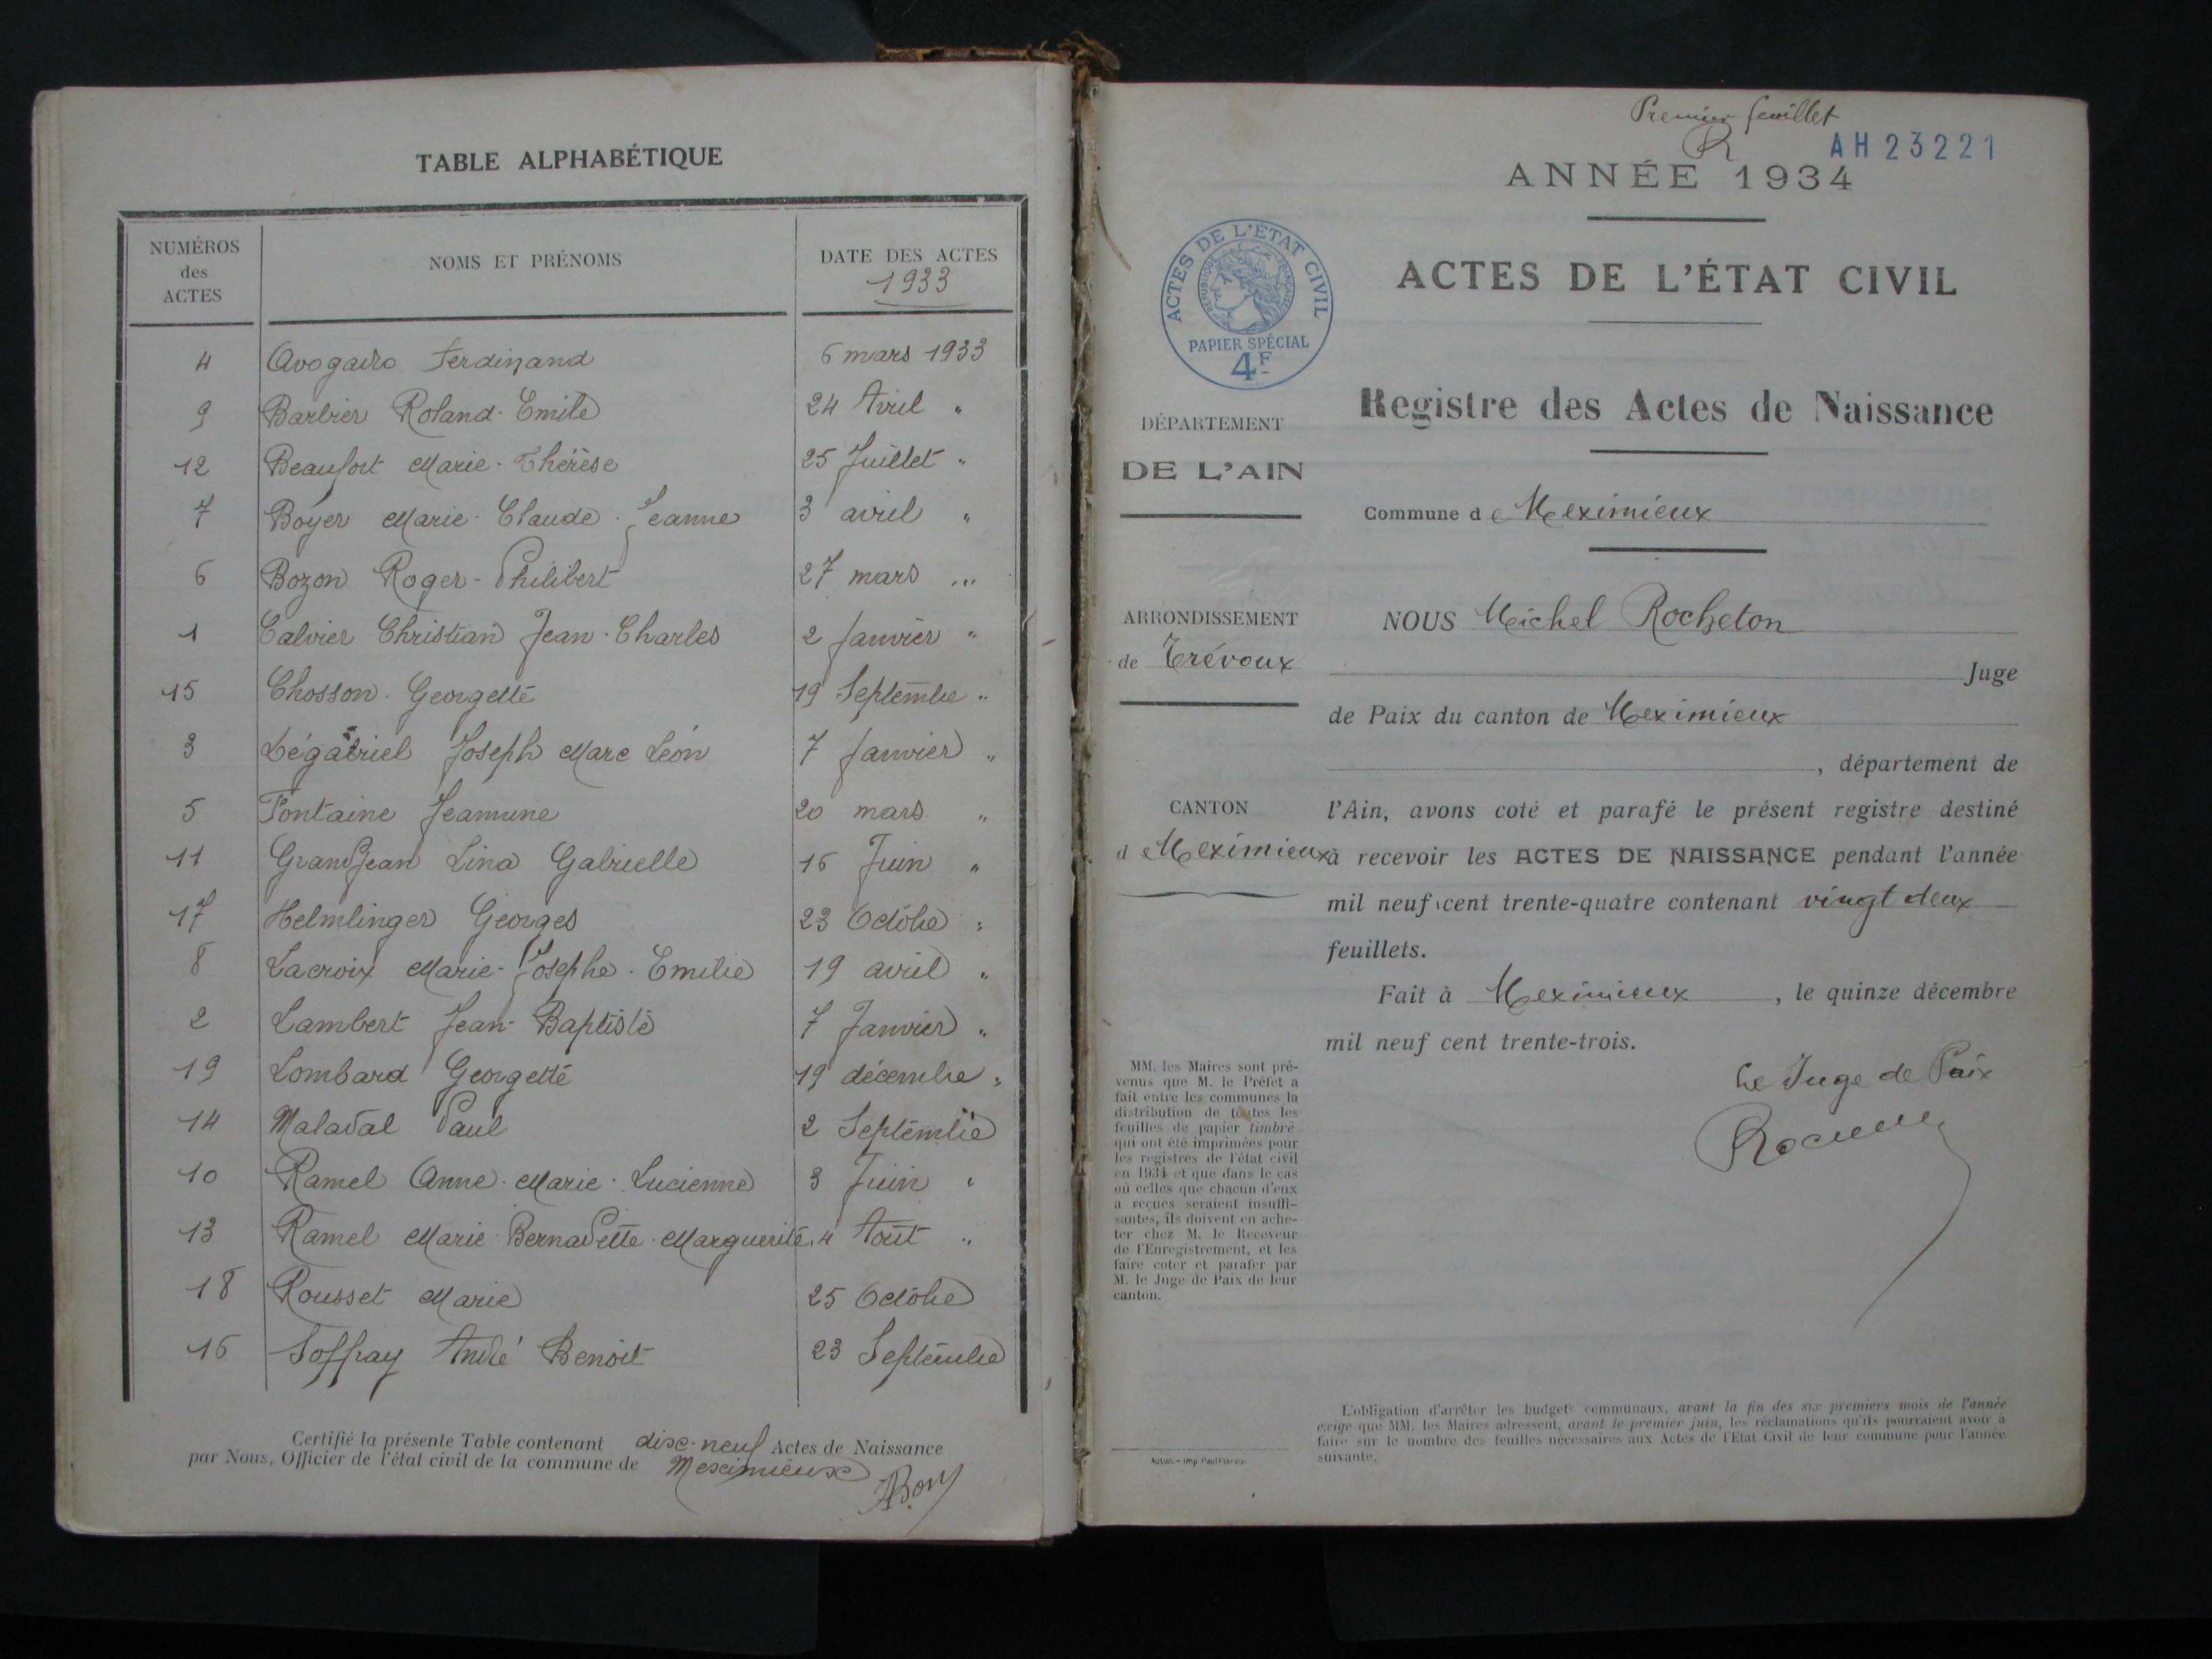 TABLE ALPHABÉTIQUE
NUMÉROS des ACTES
NOMS ET PRÉNOMS
DATE DES ACTES
1933
4 Avogadro Ferdinand 6 mars 1933
9 Barbier Roland-Emile 24 Avril "
12 Beaufort Marie-Thérèse 25 Juillet "
7 Boyer Marie-Claude-Jeanne 3 avril "
6 Bozon Roger-Philibert 27 mars "
1 Calvier Christian Jean-Charles 2 Janvier "
15 Chosson Georgette 19 Septembre "
3 Dégabriel Joseph Marc Léon 7 Janvier "
5 Fontaine Jeannine 20 mars "
11 Grandjean Lina Gabrielle 16 Juin "
17 Helmlinger Georges 23 Octobre "
8 Lacroix Marie-Josèphe-Emilie 19 avril "
2 Lambert Jean-Baptiste 7 Janvier "
19 Lombard Georgette 19 décembre "
14 Maladal Paul 2 Septembre
10 Ramel Anne-Marie-Lucienne 3 Juin "
13 Ramel Marie Bernadette-Marguerite 4 Août "
18 Rousset Marie 25 Octobre
16 Soffray André Benoit 23 Septembre
Certifié la présente Table contenant dix-neuf Actes de Naissance
par Nous, Officier de l'état civil de la commune de Meximieux
Premier feuillet
AH 23221
ANNÉE 1934
ACTES DE L'ÉTAT CIVIL
RÉPUBLIQUE FRANÇAISE
PAPIER SPÉCIAL
4F
ACTES DE L'ÉTAT CIVIL
Registre des Actes de Naissance
DÉPARTEMENT
DE L'AIN
Commune de Meximieux
ARRONDISSEMENT
de Trévoux
CANTON
de Meximieux
NOUS Michel Rocheton
Juge
de Paix du canton de Meximieux
, département de
l'Ain, avons coté et parafé le présent registre destiné
à recevoir les ACTES DE NAISSANCE pendant l'année
mil neuf cent trente-quatre contenant vingt deux
feuillets.
Fait à Meximieux, le quinze décembre
mil neuf cent trente-trois.
Le Juge de Paix
MM. les Maires sont pré-
venus que M. le Préfet a
fait entre les communes la
distribution de toutes les
feuilles de papier timbré
qui ont été imprimées pour
les registres de l'état civil
en 1934 et que dans le cas
où celles que chacun d'eux
a reçues seraient insuffi-
santes, ils doivent en ache-
ter chez M. le Receveur
de l'Enregistrement, et les
faire coter et parafer par
M. le Juge de Paix de leur
canton.
L'obligation d'arrêter les budgets communaux, avant la fin des six premiers mois de l'année
exige que MM. les Maires adressent, avant le premier juin, les réclamations qu'ils pourraient avoir à
faire sur le nombre des feuilles nécessaires aux Actes de l'Etat Civil de leur commune pour l'année
suivante.